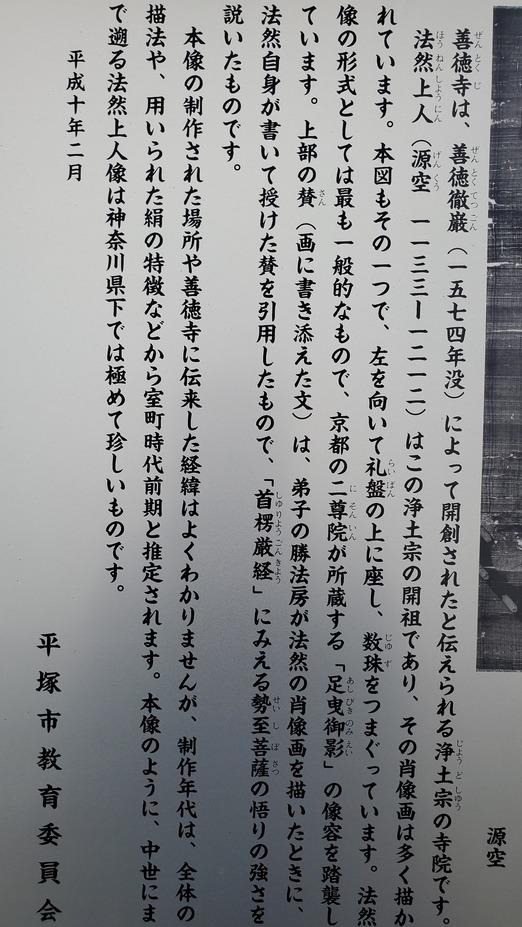 源空
善徳寺は、善徳徹巌（一五七四年没）によって開創されたと伝えられる浄土宗の寺院です。
法然上人（源空　一一三三ー一二一二）はこの浄土宗の開祖であり、その肖像画は多く描か
れています。本図もその一つで、左を向いて礼盤の上に座し、数珠をつまぐっています。法然
像の形式としては最も一般的なもので、京都の二尊院が所蔵する「足曳御影」の像容を踏襲し
ています。上部の賛（画に書き添えた文）は、弟子の勝法房が法然の肖像画を描いたときに、
法然自身が書いて授けた賛を引用したもので、「首楞厳経」にみえる勢至菩薩の悟りの強さを
説いたものです。
本像の制作された場所や善徳寺に伝来した経緯はよくわかりませんが、制作年代は、全体の
描法や、用いられた絹の特徴などから室町時代前期と推定されます。本像のように、中世にま
で遡る法然上人像は神奈川県下では極めて珍しいものです。
平成十年二月
平塚市教育委員会